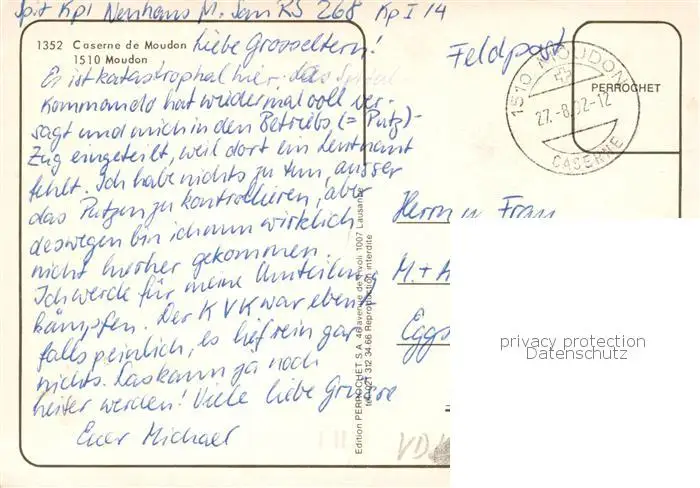 Spit Kpl Neuhaus M. San RS 268 Kp I / 4
1352 Caserne de Moudon
1510 Moudon
Liebe Grosseltern!
Es ist katastrophal hier, das Spital
Kommando hat wiedermal voll ver-
sagt und mich in den Betriebs (= Putz)-
Zug eingeteilt, weil dort ein Leutnant
fehlt. Ich habe nichts zu tun, ausser
das Putzen zu kontrollieren, aber
deswegen bin ich nun wirklich
nicht hierher gekommen.
Ich werde für meine Umteilung
kämpfen. Der KVK war eben
falls peinlich, es lief rein gar
nichts. Das kann ja noch
heiter werden! Viele liebe Grüsse
Euer Michael
Edition PERROCHET S.A. 46 avenue de Tivoli 1007 Lausanne
tél 021 312 34 66 Reproduction interdite
Feldpost
1510 MOUDON
27.-8.92-12
CASERNE
PERROCHET
Herrn u Frau
M. + A
Eggs
privacy protection
Datenschutz